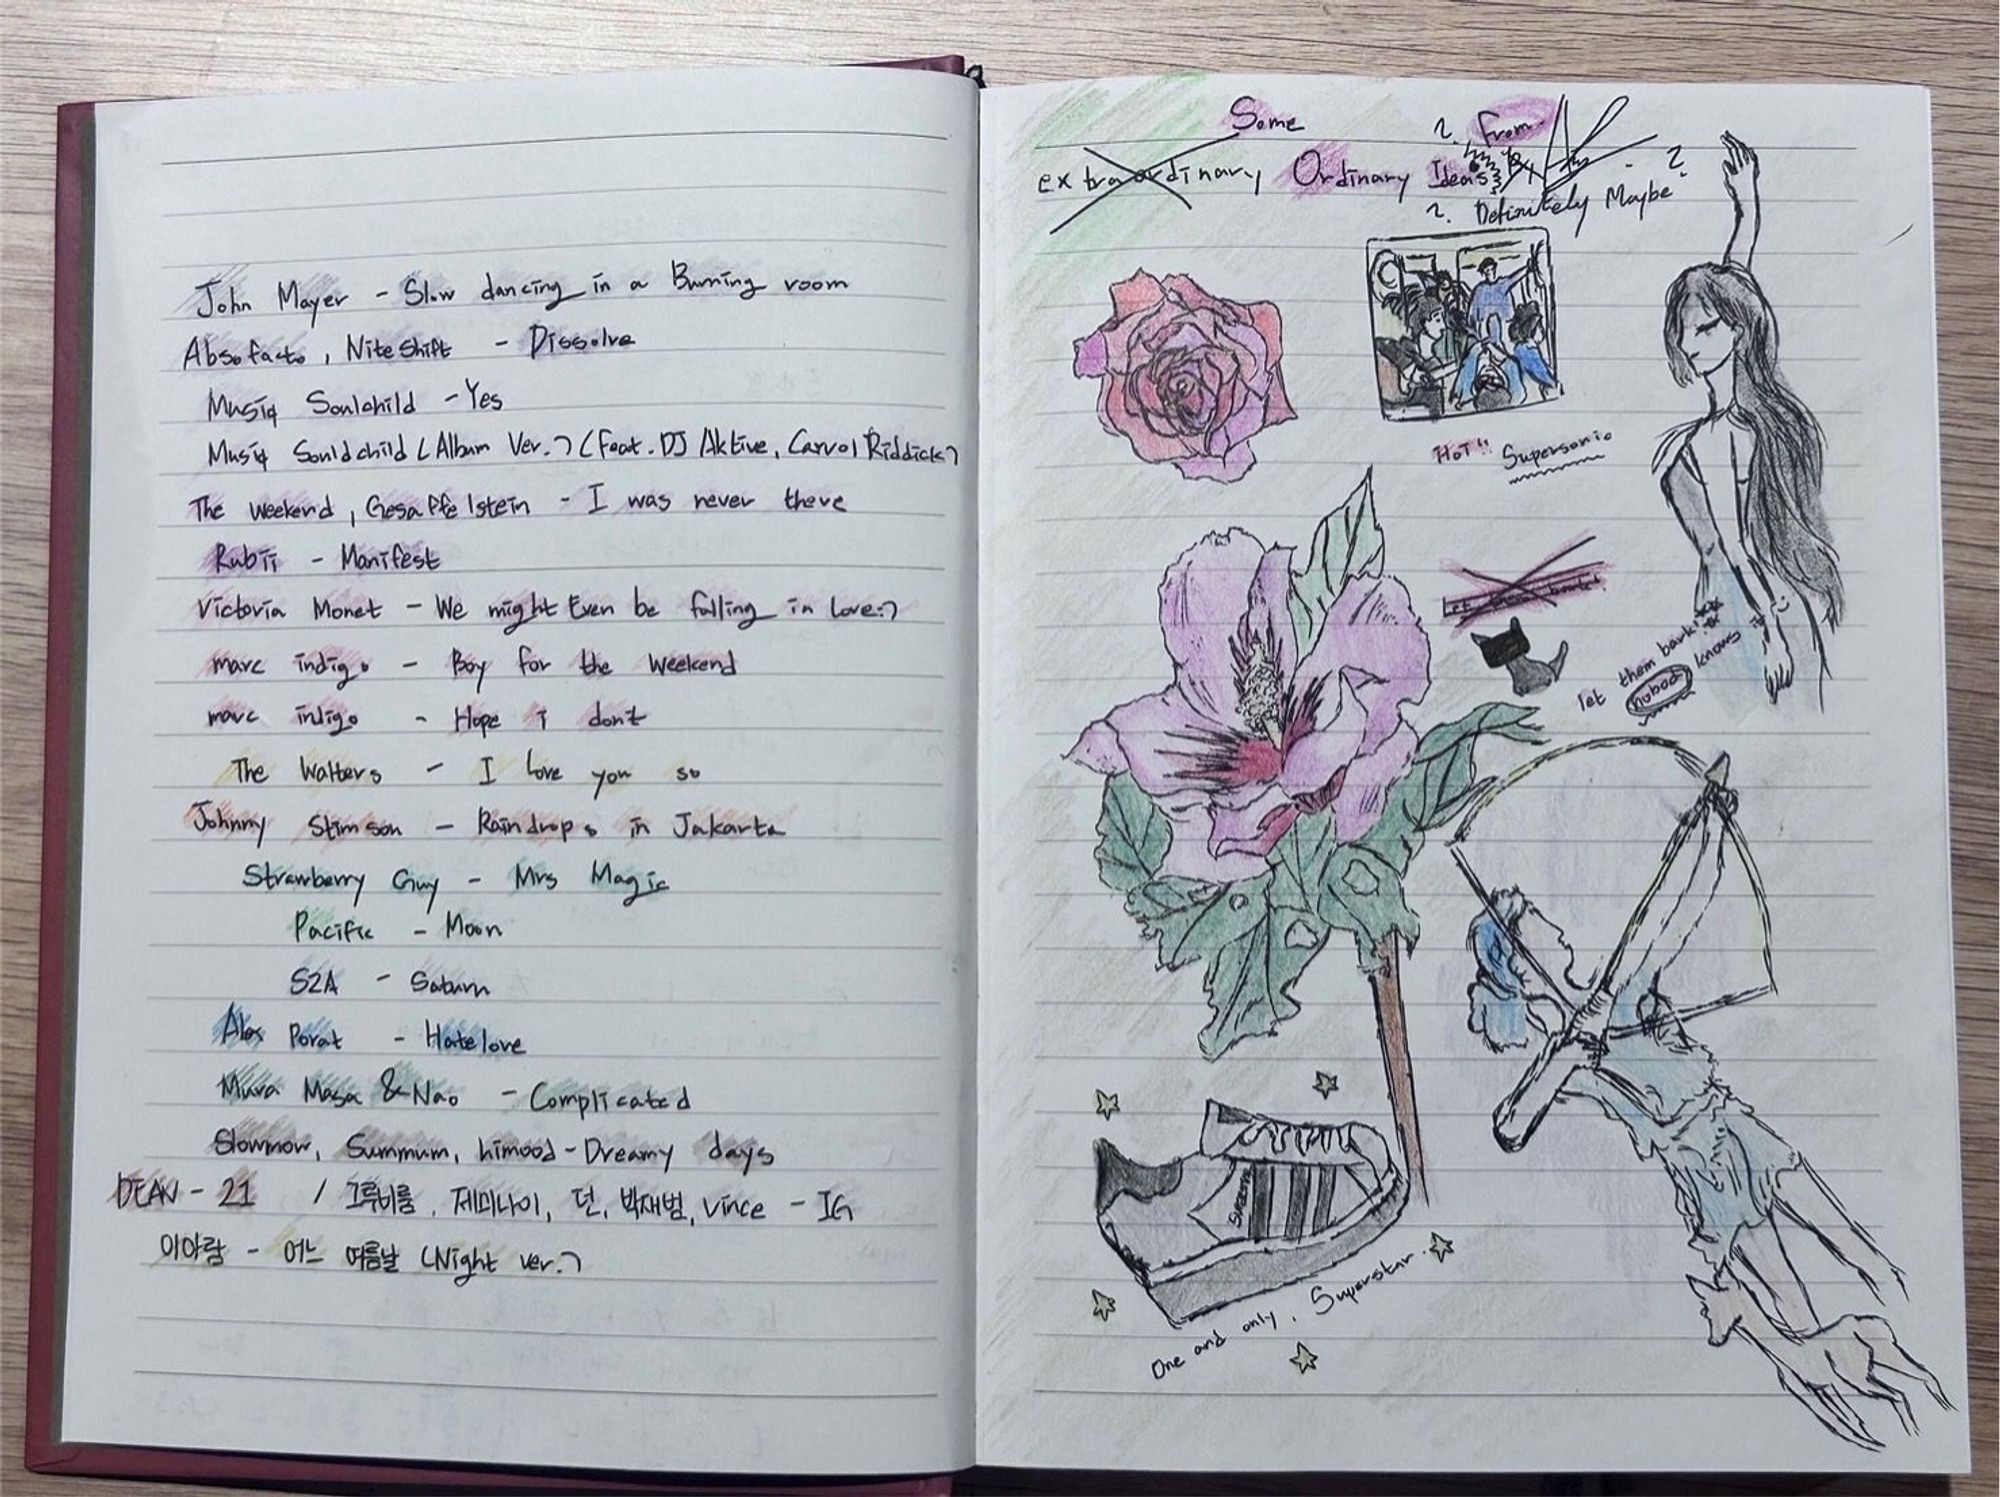 John Mayer - Slow dancing in a Burning room
Absofacto, Niteshift - Dissolve
Musiq Soulchild - Yes
Musiq Souldchild (Album Ver.) (feat. DJ Aktive, Carvol Riddick)
The weekend, Gesaffelstein - I was never there
Rubii - Manifest
Victoria Monet - We might Even be falling in love:)
marc indigo - Boy for the weekend
marc indigo - Hope i dont
The Walters - I love you so
Johnny Stimson - Raindrops in Jakarta
Strawberry Guy - Mrs Magic
Pacific - Moon
S2A - Saturn
Alex Porat - Hatelove
Mura Masa & Nao - Complicated
Slownow, Summum, himood - Dreamy days
DEAN - 21 / 그루비룸, 제미나이, 던, 박재범, Vince - IG
이아람 - 어느 여름날 (Night ver.)
Some
?. From
extraordinary Ordinary Ideas By - ?
?. Definitely Maybe
HOT!! Supersonic
Let them bark!
let them bark!
nobody knows
SUPERSTAR
One and only, Superstar.